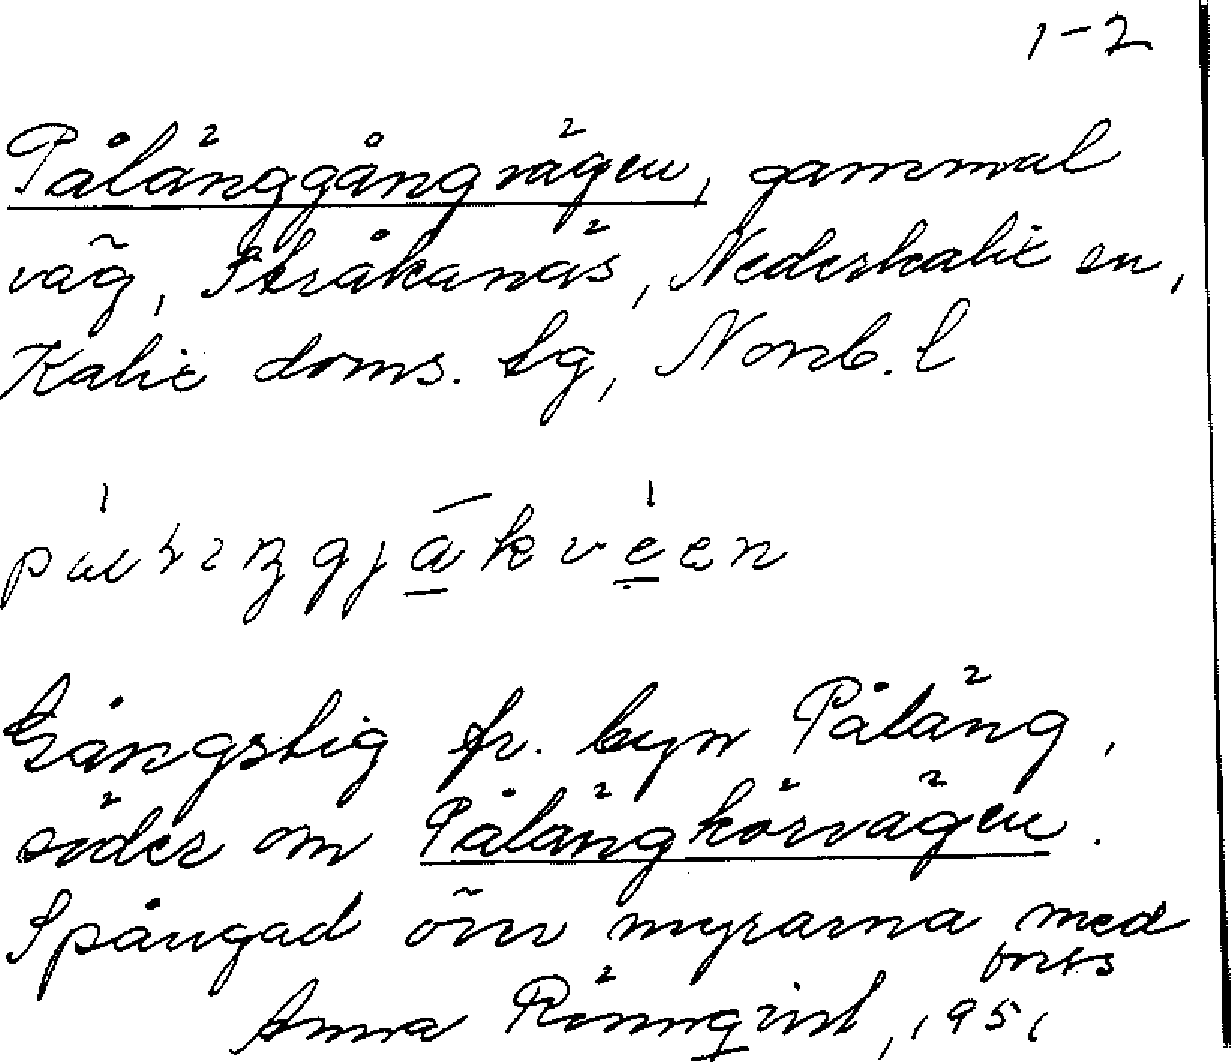 1-2
Pålänggångvägen, gammal
väg, Stråkanäs, Nederkalix sn,
Kalix doms. lg, Norrb. l
Gångstig fr. byn Påläng,
söder om Pålängkörvägen.
Spångad över myrarna med
forts
Anna Rönnqvist, 1951